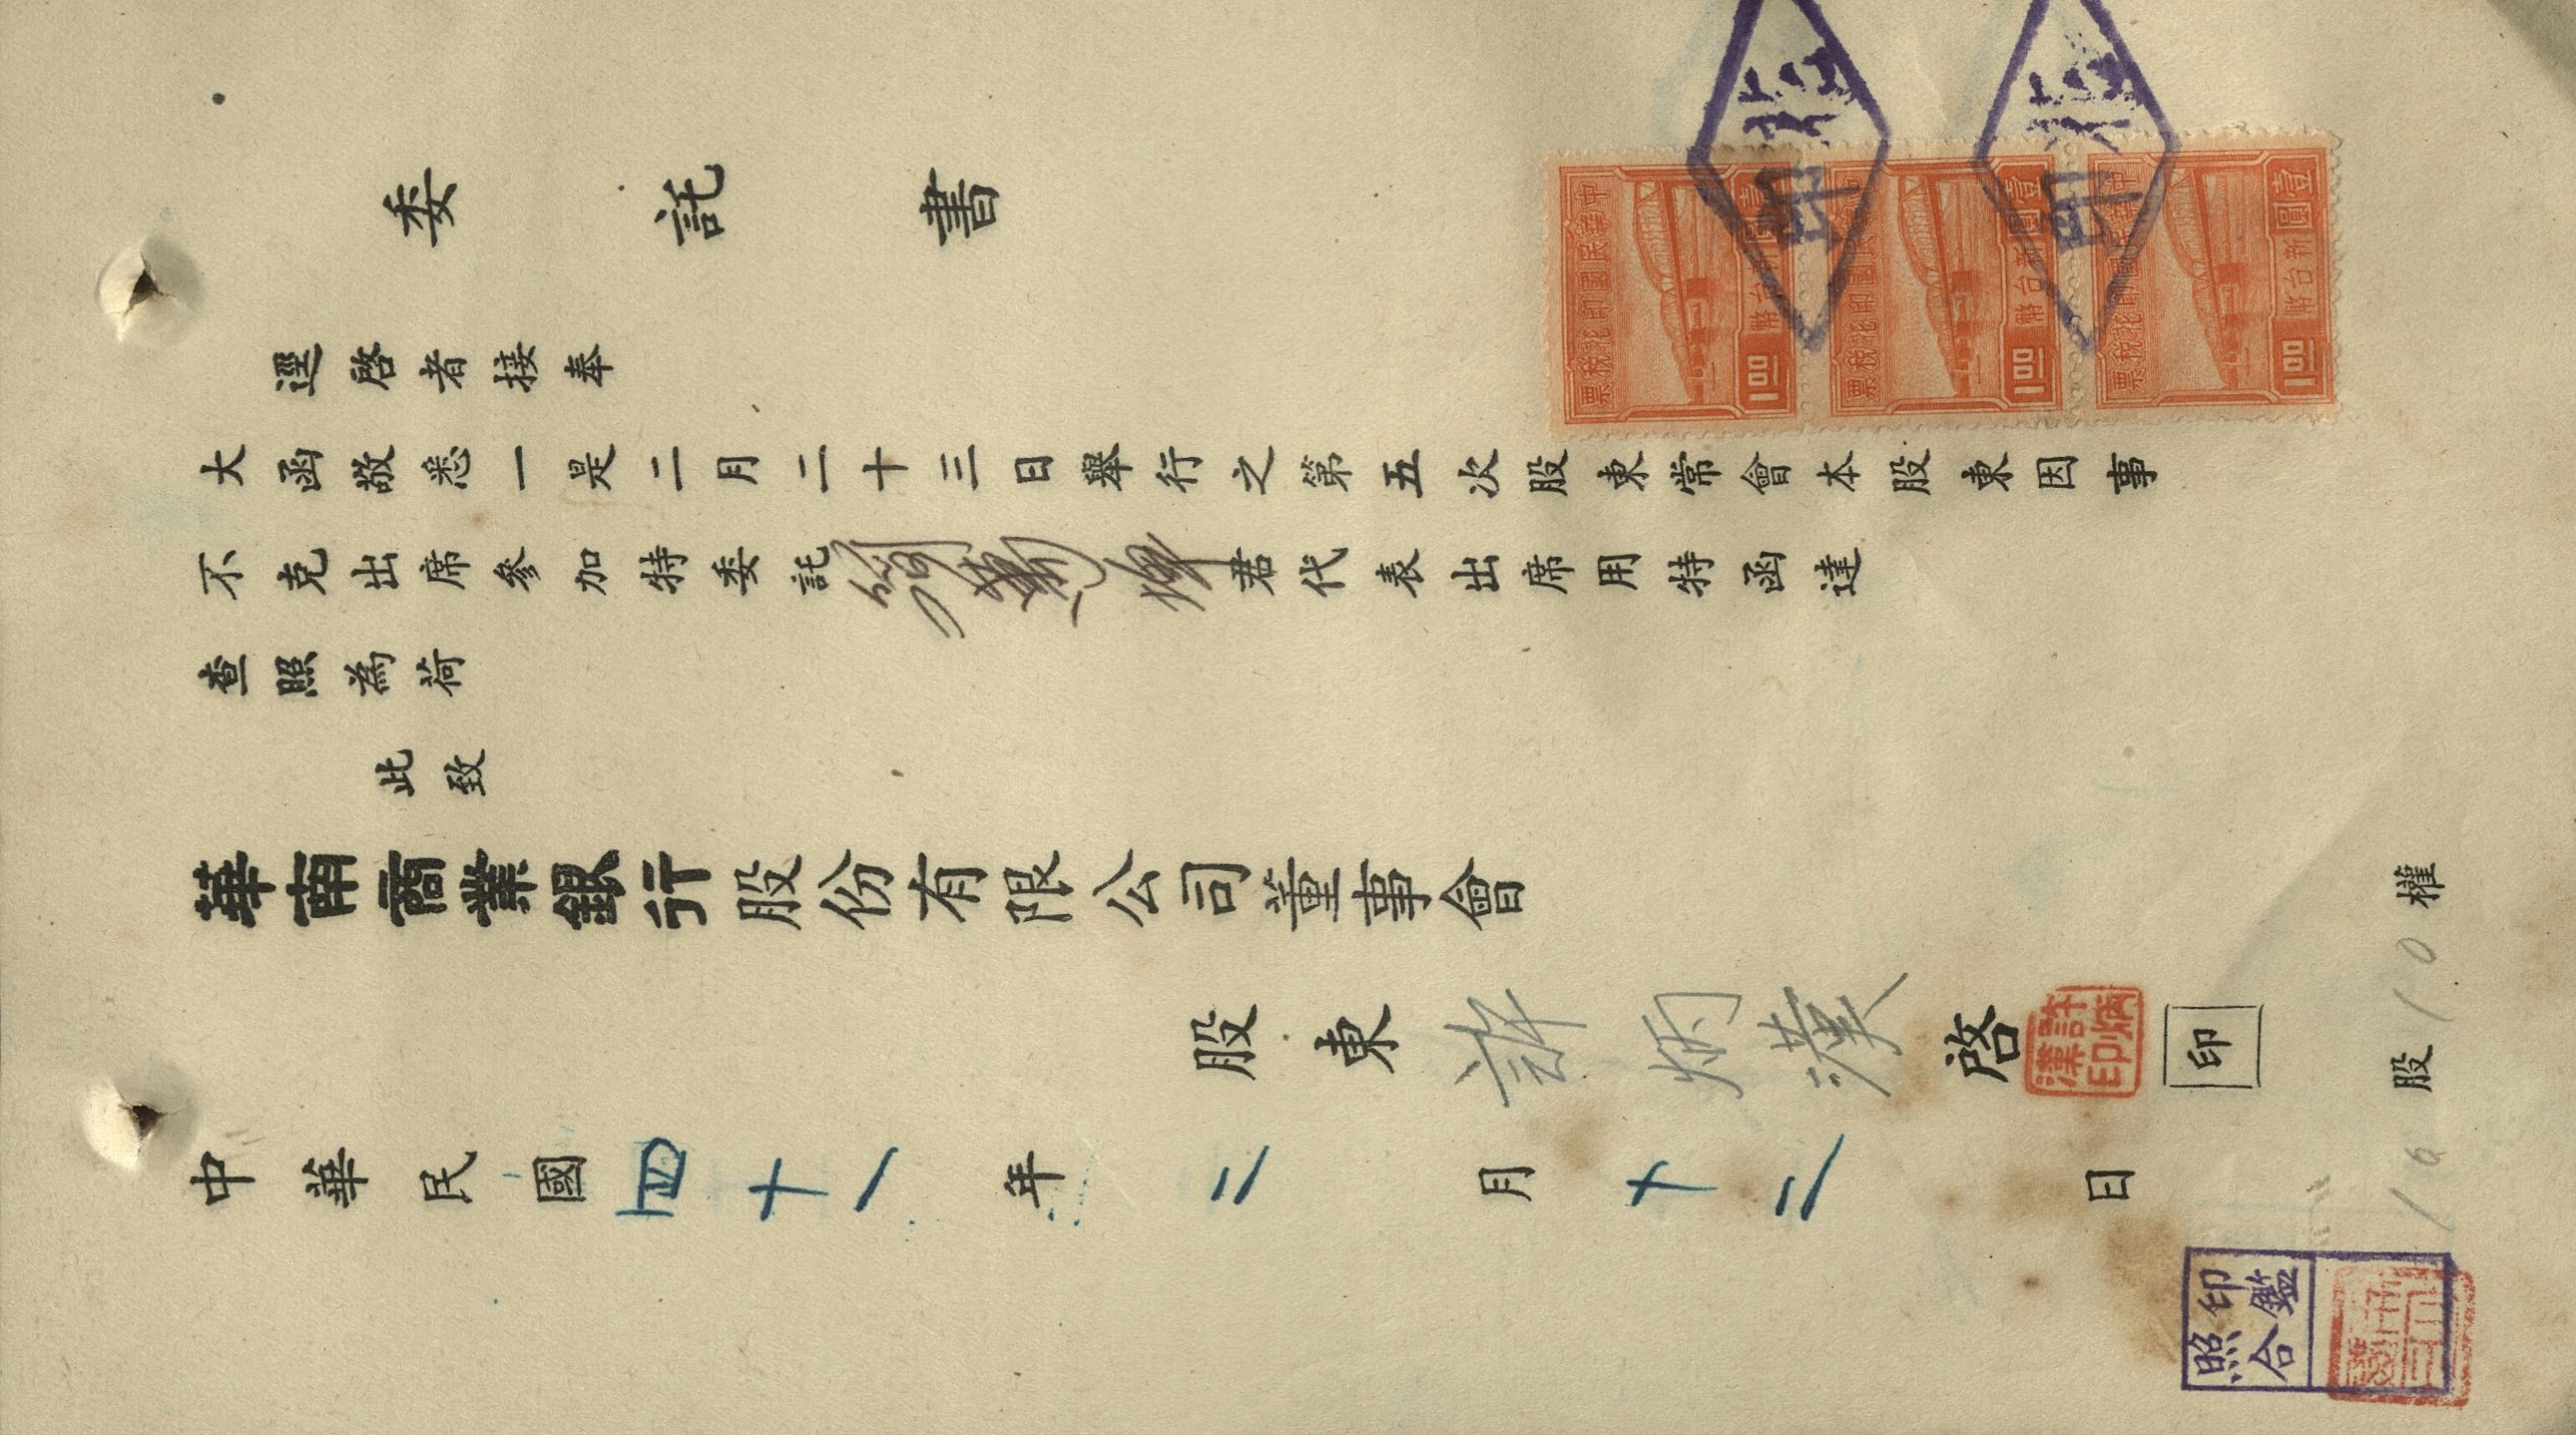 委託書
逕啓者接奉
大函敬悉一是二月二十三日舉行之第五次股東常會本股東因事
不克出席參加特委託 君代表出席用特函達
查照為荷
此致
華南商業銀行股份有限公司董事會
股東 許炳漢 啓
許炳
漢印
印
中華民國四十一年二月十二日
10股10權
印鑑
照合
中華民國印花稅票
壹圓
新台幣
1.00
中華民國印花稅票
壹圓
新台幣
1.00
中華民國印花稅票
壹圓
新台幣
1.00